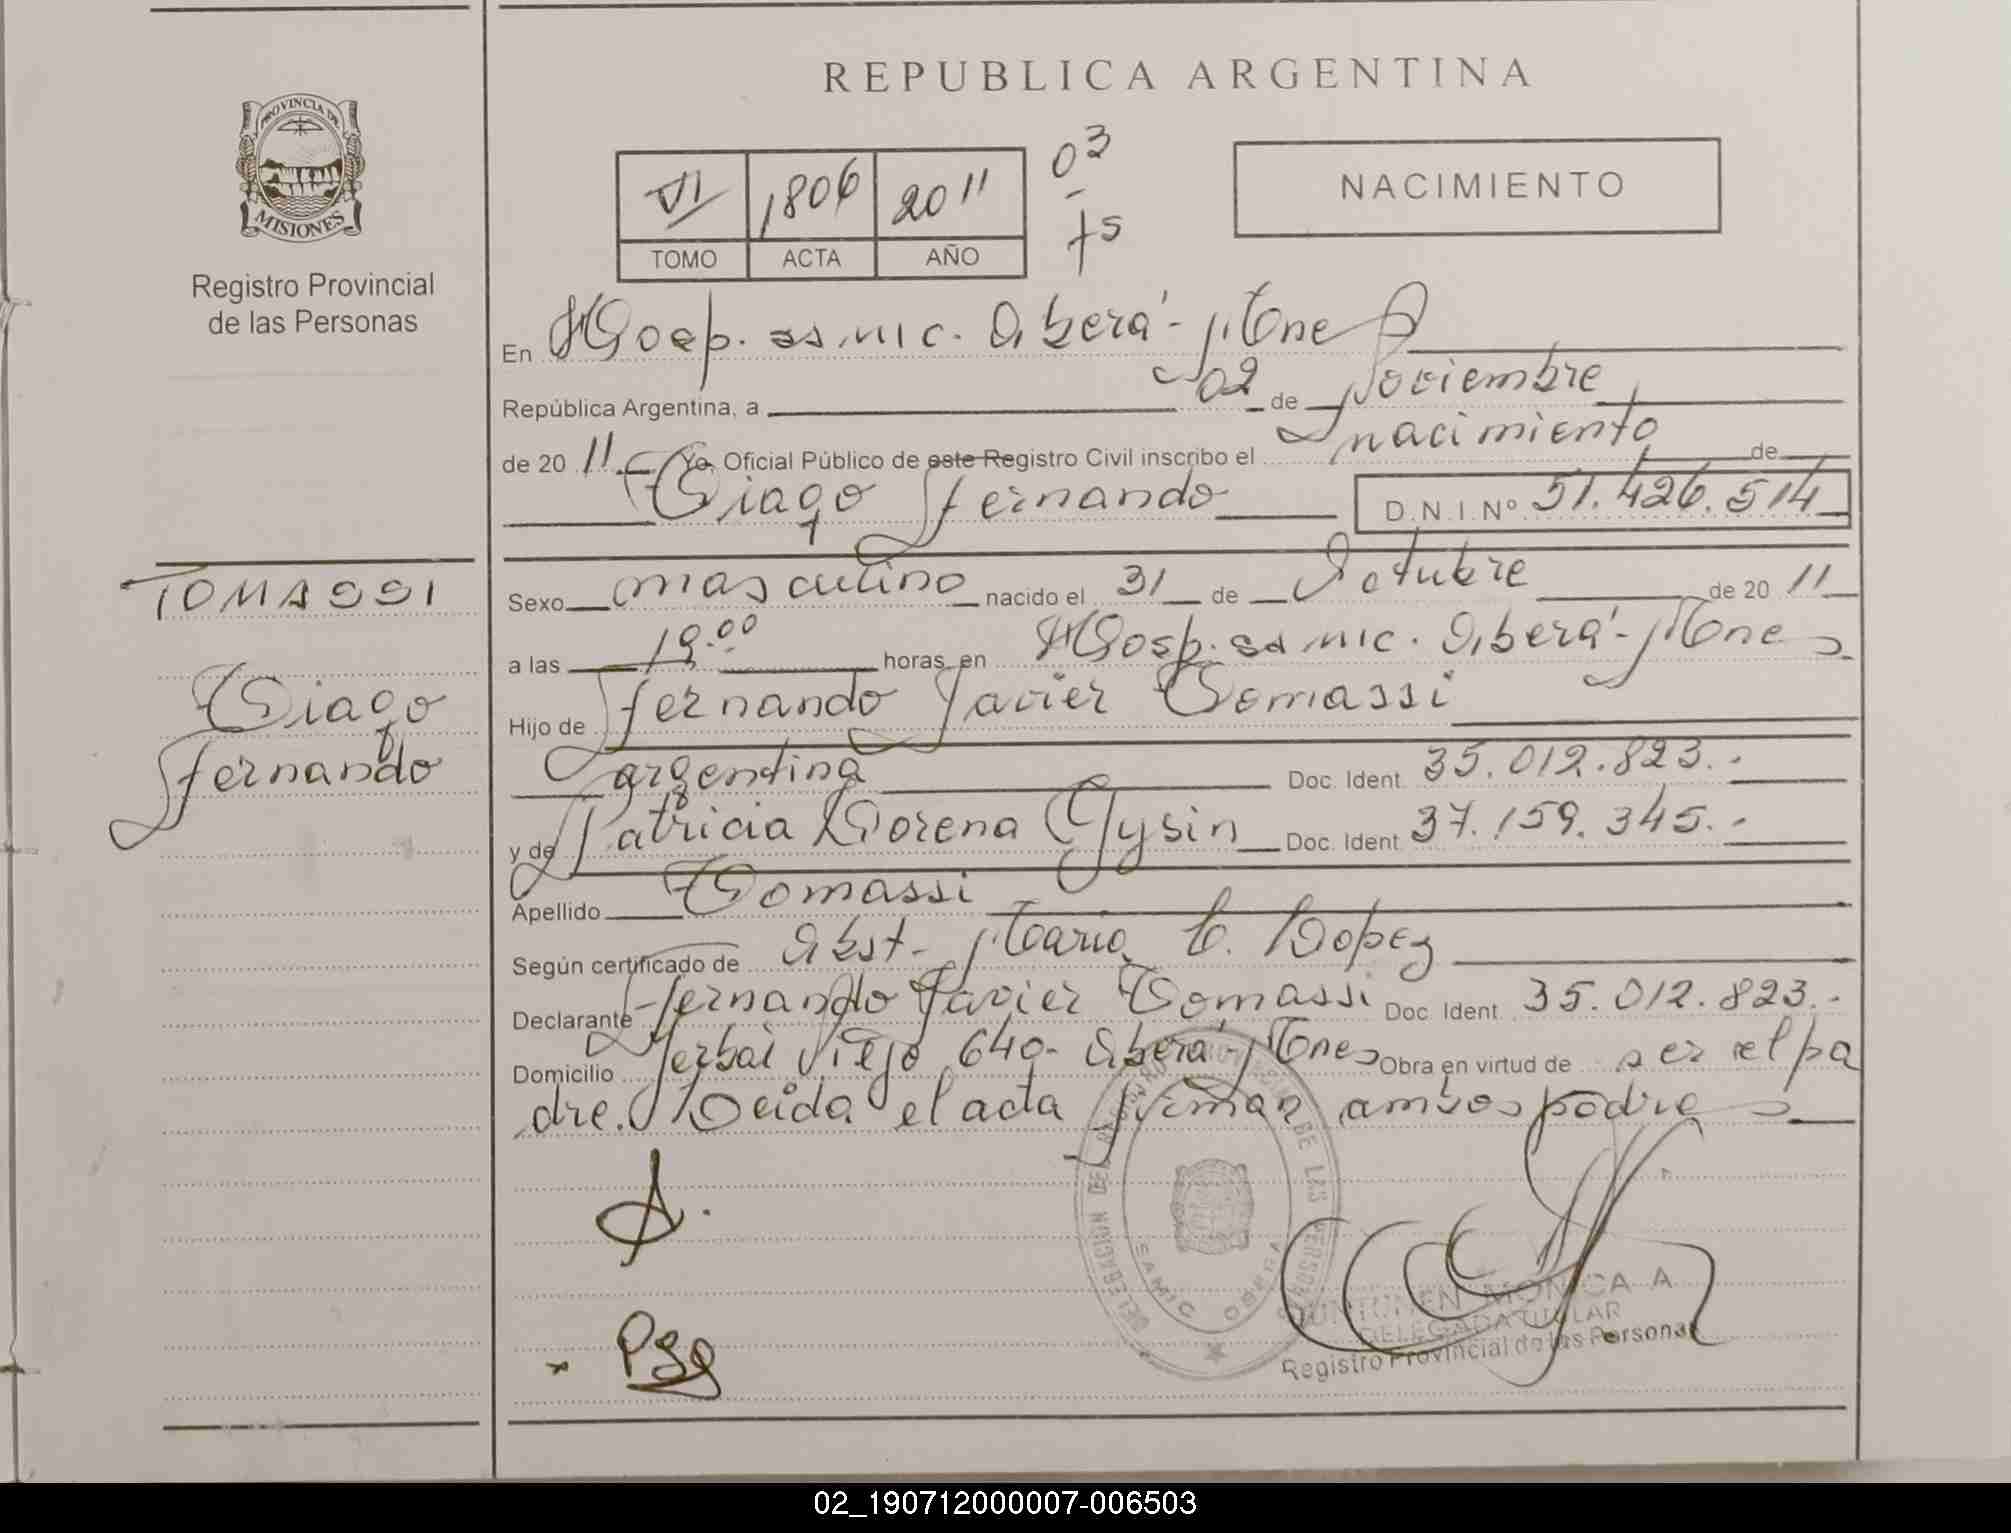 REPUBLICA ARGENTINA
PROVINCIA DE
MISIONES
Registro Provincial
de las Personas
VI 1806 2011
TOMO ACTA AÑO
03
75
NACIMIENTO
En Hosp. sa mic. Oberá - Mnes
República Argentina, a 02 de Noviembre
de 20 11 Yo, Oficial Público de este Registro Civil inscribo el nacimiento de
Tiago Fernando D.N.I. Nº 51.426.514
TOMASSI
Tiago
Fernando
Sexo masculino nacido el 31 de Octubre de 20 11
a las 19.00 horas, en Hosp. sa mic. Oberá - Mnes
Hijo de Fernando Javier Tomassi
argentina Doc. Ident. 35.012.823.-
y de Patricia Lorena Gysin Doc. Ident. 37.159.345.-
Apellido Tomassi
Según certificado de Obst - Maria C. Lopez
Declarante Fernando Javier Tomassi Doc. Ident. 35.012.823.-
Domicilio Yerbal Viejo 640 - Oberá - Mnes Obra en virtud de ser el pa
dre. Leida el acta firman ambos padres
DELEGACION DE REGISTRO PROVINCIAL DE LAS PERSONAS
MONICA A
DELEGADA TITULAR
Registro Provincial de las Personas
02_190712000007-006503